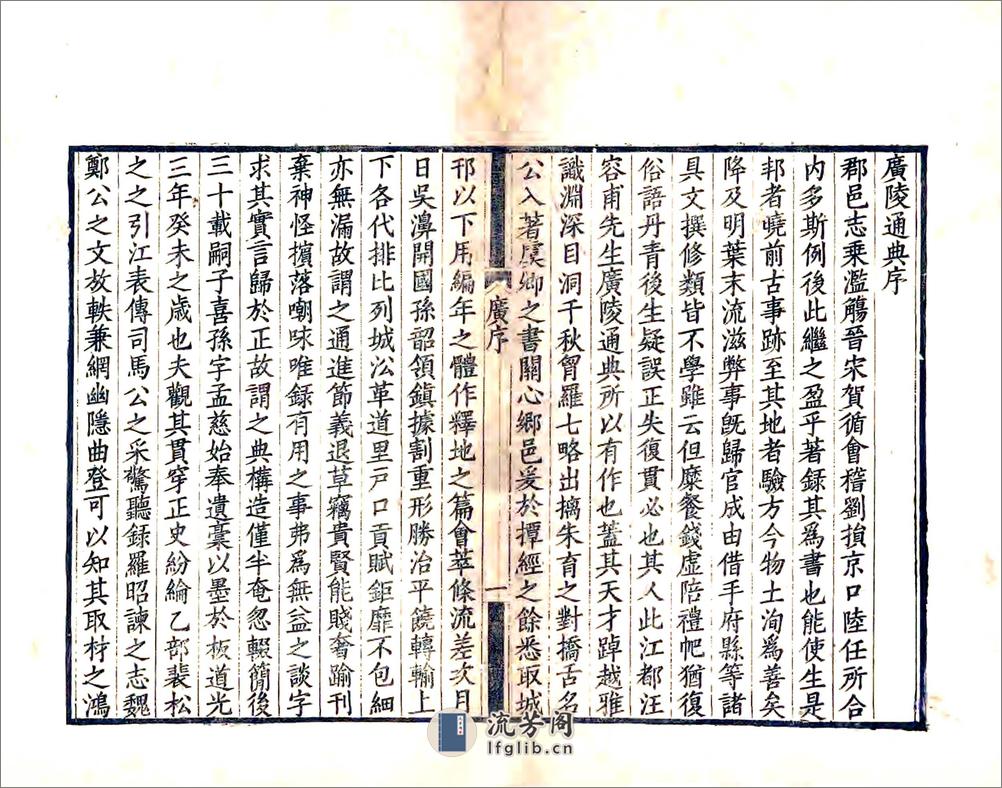 廣陵通典序
郡邑志乘濫觴晉宋賀循會稽劉損京口陸任所合
内多斯例後此繼之盈乎著録其爲書也能使生是
邦者曉前古事跡至其地者驗方今物土洵爲善矣
降及明葉末流滋弊事旣歸官成由借手府縣等諸
具文撰修類皆不學雖云但糜餐錢虛陪禮帊猶復
俗語丹青後生疑誤正失復貫必也其人此江都汪
容甫先生廣陵通典所以有作也蓋其天才踔越雅
識淵深目洞千秋胷羅七略出摛朱育之對擣舌名
公入著虞卿之書關心鄉邑爰於撢經之餘悉取城
廣序
一
邗以下用編年之體作釋地之篇會萃條流差次月
日吳濞開國孫韶領鎮據割重形勝冶平饒轉輸上
下各代排比列城㳂革道里戸口貢賦鉅靡不包細
亦無漏故謂之通進節義退草竊貴賢能賤奢踰刊
棄神怪擯落嘲咏唯録有用之事弗爲無益之談字
求其實言歸於正故謂之典構造僅半奄忽輟簡後
三十載嗣子喜孫字孟慈始奉遺稾以墨於板道光
三年癸未之歲也夫觀其貫穿正史紛綸乙部裴松
之之引江表傳司馬公之采驚聽録羅昭諫之志魏
鄭公之文放軼兼網幽隱曲登可以知其取材之鴻
流芳阁
lfglib.cn